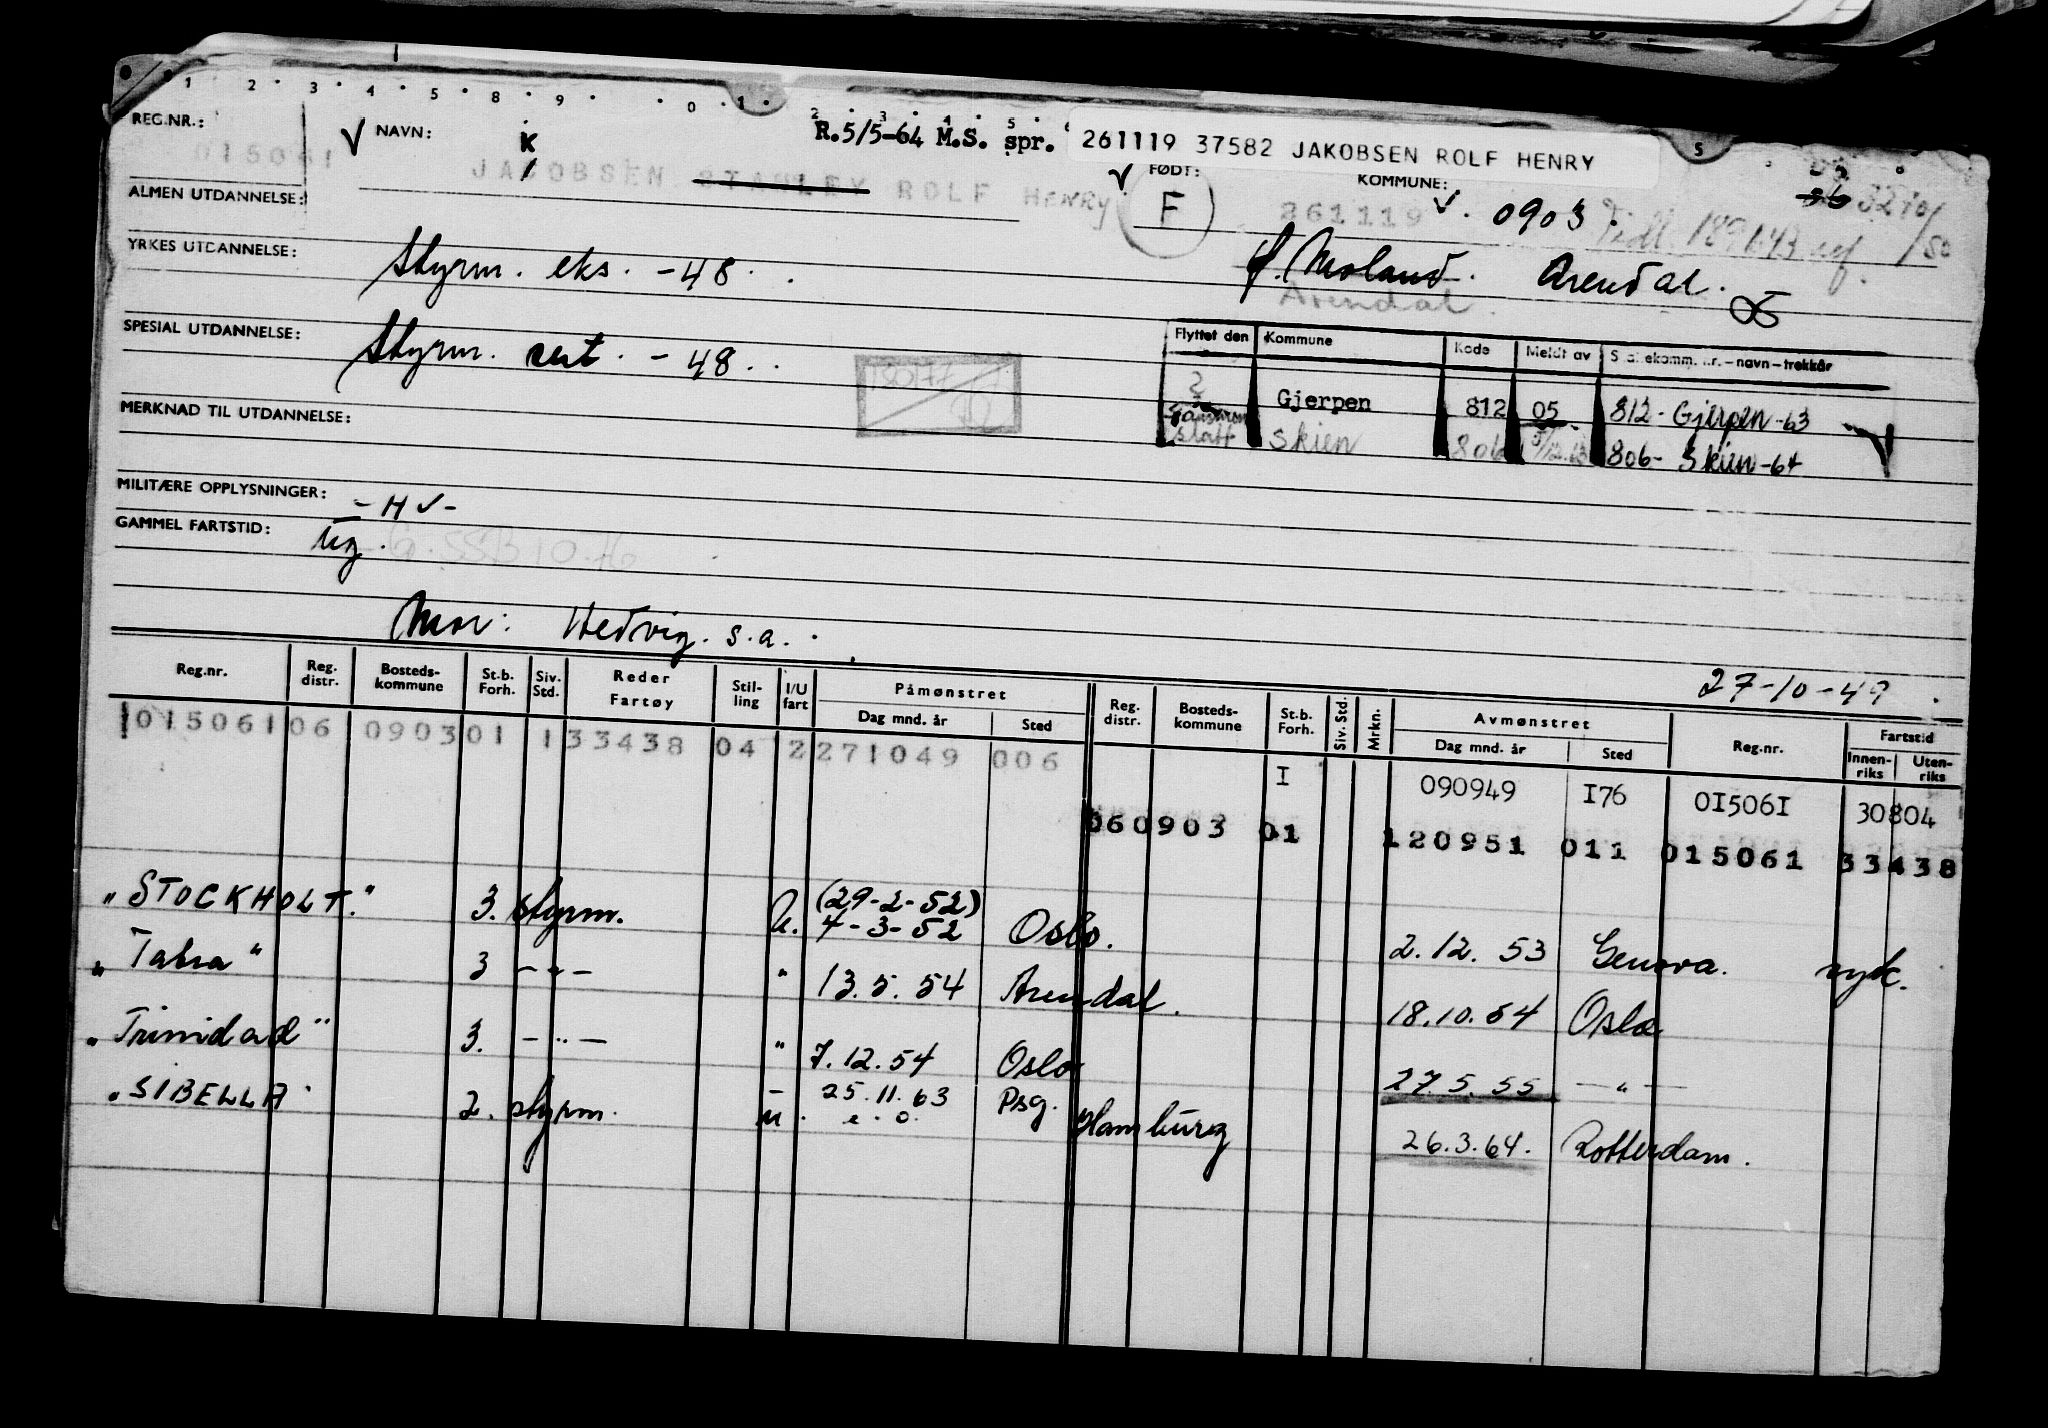 1 2 · 3 · 4 · 5 · 8 · 9 · · 0 · 1 · 2 · 3 · 4 · 5 ·
REG.NR.: 015061
NAVN: K
R.5/5-64 M.S. spr.
261119 37582 JAKOBSEN ROLF HENRY
JACOBSEN STANLEY ROLF HENRY
FØDT: F 261119
KOMMUNE: 0903
ALMEN UTDANNELSE:
YRKES UTDANNELSE: Styrm. eks. -48.
f. Moland. Arendal.
Arendal
SPESIAL UTDANNELSE: Styrm. sert. -48.
Flyttet den Kommune Kode Meldt av Skattekomm. nr.-navn-trekkår
Gjerpen 812 05 812- Gjerpen-63
Skien 806 5/12.63 806- Skien-64
MERKNAD TIL UTDANNELSE:
MILITÆRE OPPLYSNINGER: - HV -
GAMMEL FARTSTID:
Mor: Hedvig. s.a.
27-10-49
Reg.nr. Reg. distr. Bosteds-kommune St.b. Forh. Siv. Std. Reder Fartøy Stil-ling I/U fart Påmønstret Dag mnd. år Sted Reg. distr. Bosteds-kommune St.b. Forh. Siv. Std. Mrkn. Avmønstret Dag mnd. år Sted Reg.nr. Fartstid Innen-riks Uten-riks
015061 06 0903 01 1 33438 04 2 271049 006
I 090949 I76 0I506I 30804
060903 01 120951 011 015061 33438
"STOCKHOLT." 3. styrm. U. (29-2-52) 4-3-52 Oslo. 2.12.53 Genova. syk.
"Tabra" 3 -"- " 13.5.54 Arendal. 18.10.54 Oslo
"Trinidad" 3. -"- " 7.12.54 Oslo 27.5.55 -"-
"SIBELLA" 2. styrm. u. 25.11.63 e.o. Psg. Hamburg 26.3.64. Rotterdam.